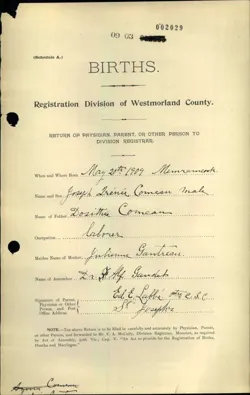 002029
09 03
(Schedule A.)
BIRTHS.
Registration Division of Westmorland County.
RETURN OF PHYSICIAN, PARENT, OR OTHER PERSON TO
DIVISION REGISTRAR.
When and Where Born May 20th 1909 Memramcook
Name and Sex Joseph Irenie Comeau male
Name of Father Dosithe Comeau
Occupation laborer
Maiden Name of Mother Julienne Gautreau
Name of Accoucheur Dr. Alf Gaudet
Signature of Parent,
Physician or Other
Person, and Post
Office Address
Ed. E. Labbé Ptr C.S.C.
St. Joseph
NOTE.—The above Return is to be filled in carefully and accurately by Physician, Parent,
or other Person, and forwarded to Mr. F. A. McCully, Division Registrar, Moncton, as required
by Act of Assembly, 50th Vic., Cap. 5, "An Act to provide for the Registration of Births,
Deaths and Marriages."